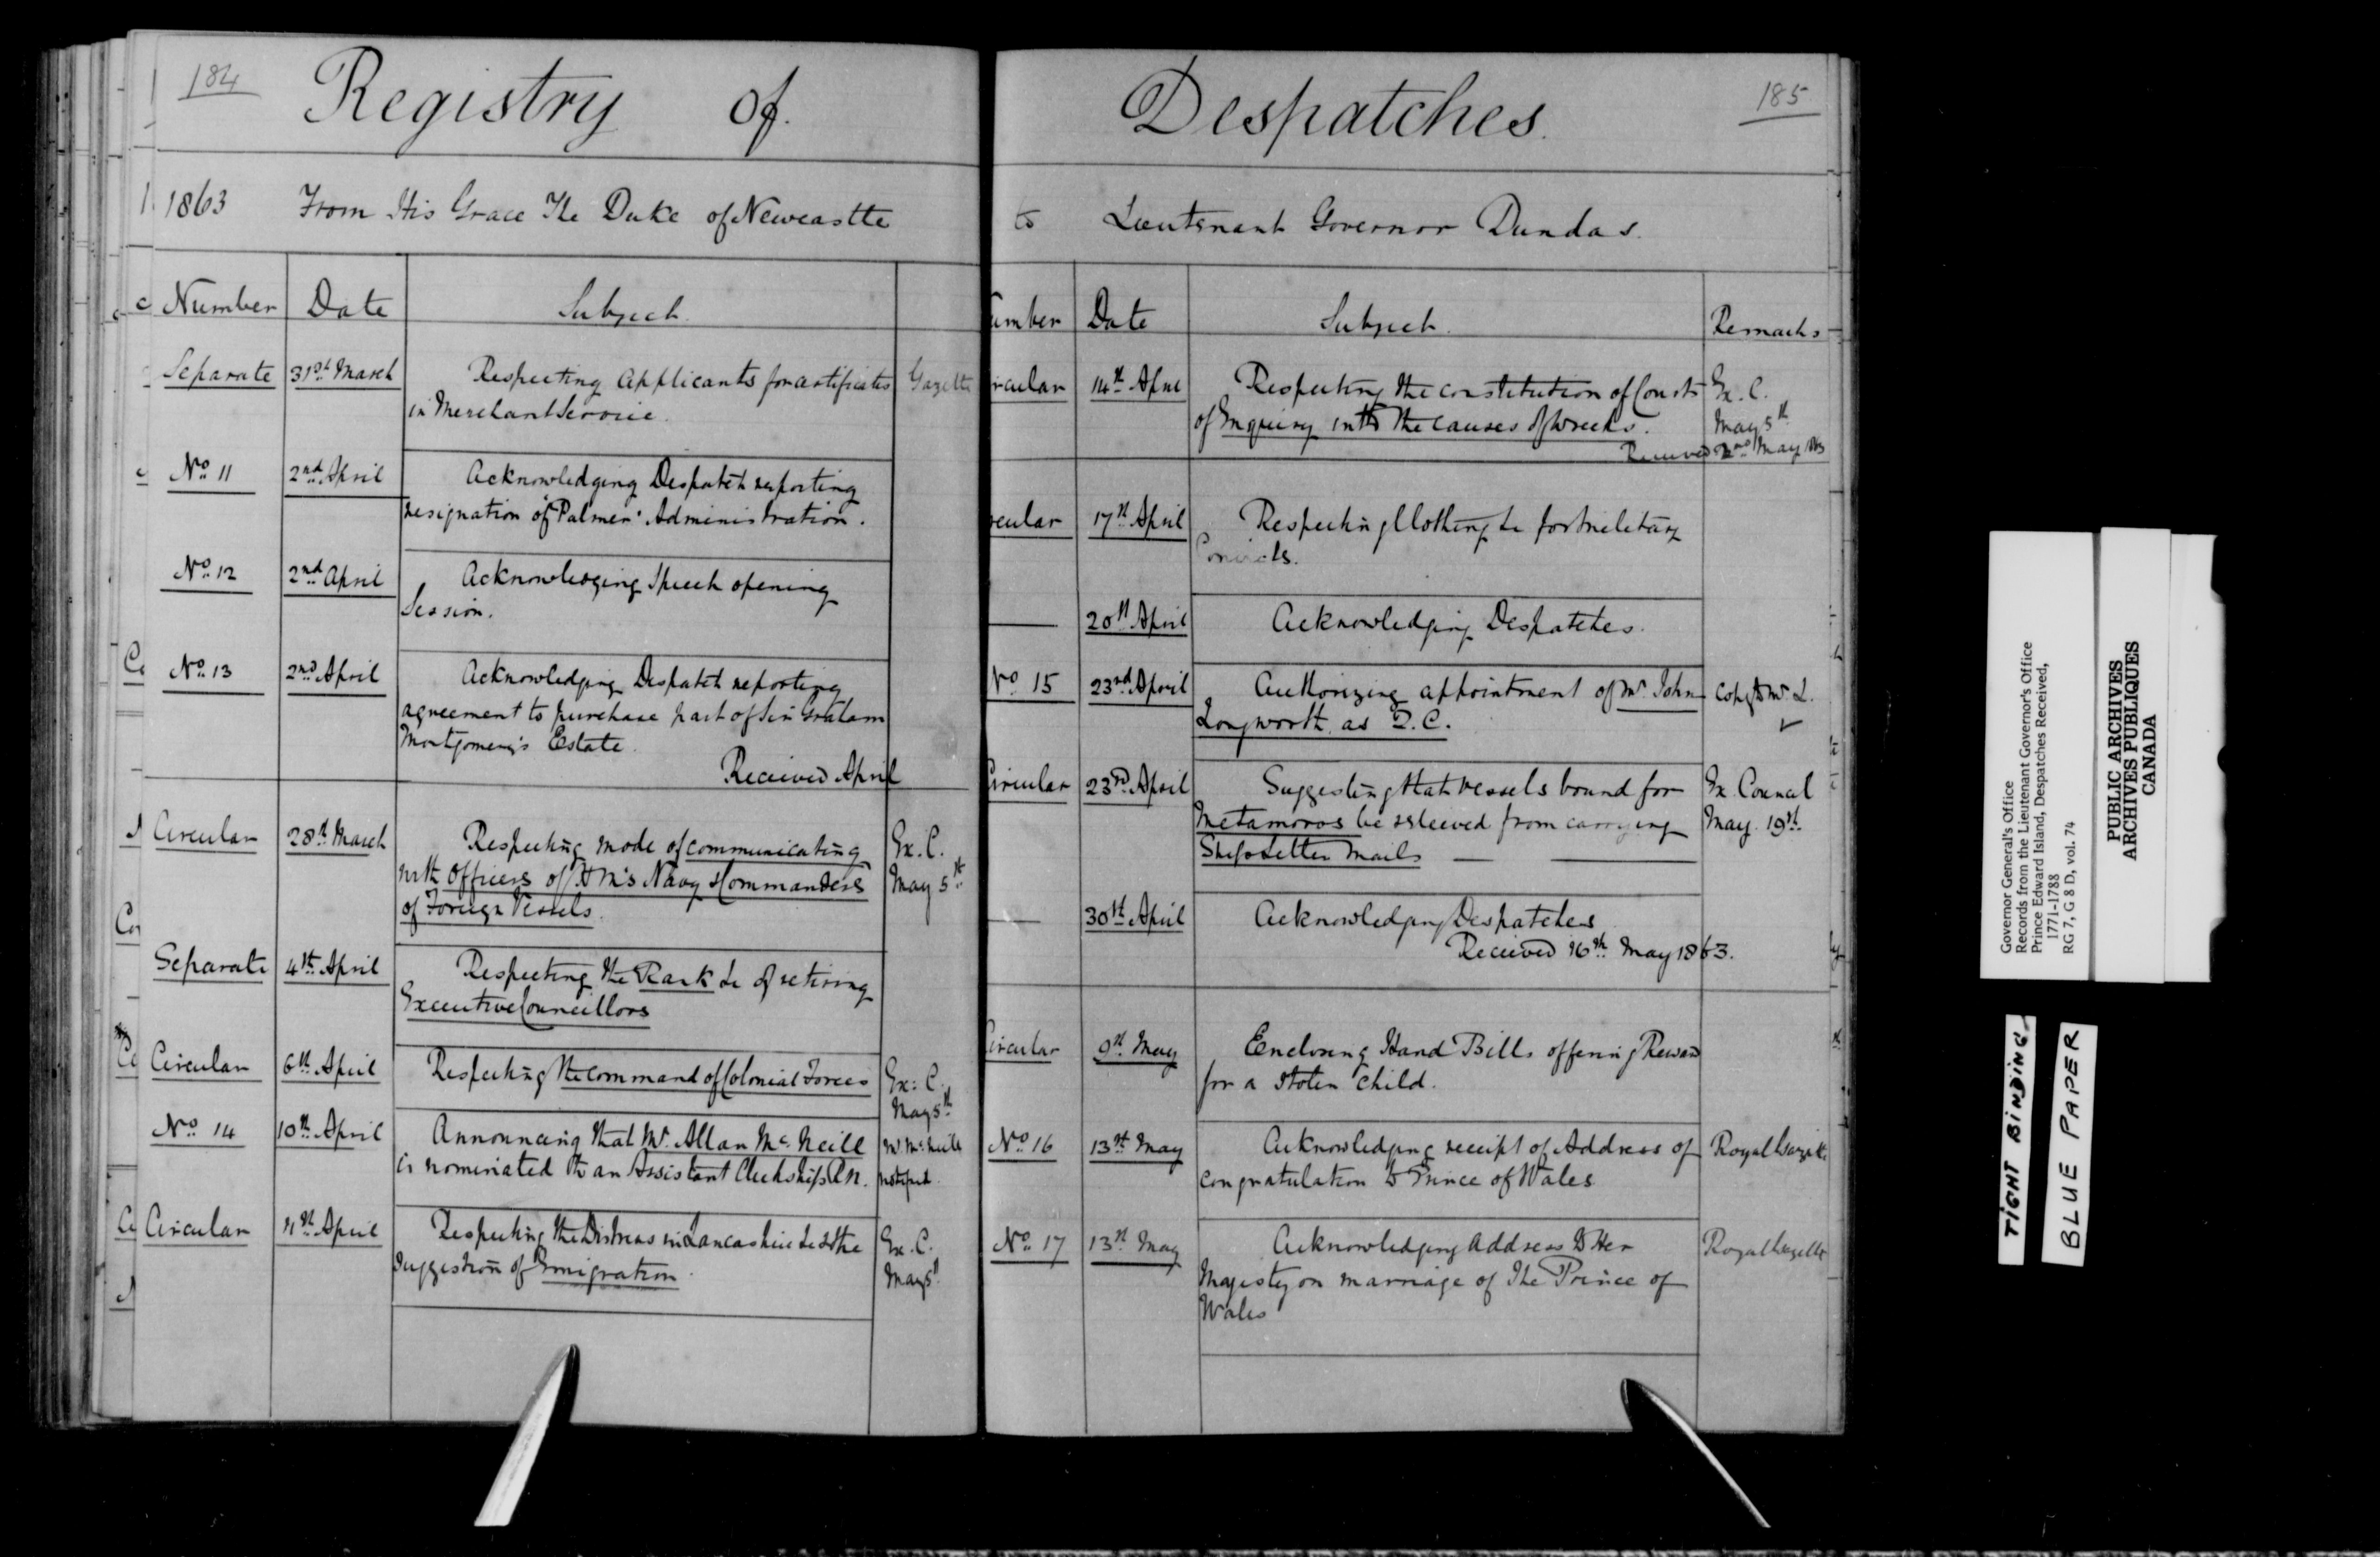 184
Registry of.
1863 From His Grace The Duke of Newcastle
Number Date Subject.
Separate 31st March Respecting Applicants for certificates Gazette
in Merchant Service.
No. 11 2nd April Acknowledging Despatch reporting
resignation of "Palmer" Administration.
No. 12 2nd April Acknowledging Speech opening
Session.
No. 13 2nd April Acknowledging Despatch reporting
agreement to purchase part of Sir Graham
Montgomery's Estate.
Received April
Circular 28th March Respecting mode of communicating Ex. C.
with Officers of H M's Navy & Commanders May 5th
of Foreign Vessels.
Separate 4th April Respecting the Rank &c of retiring
Executive Councillors
Circular 6th April Respecting the command of Colonial Forces Ex: C.
May 5th
No. 14 10th April Announcing that Mr. Allan McNeill Mr. McNeill
is nominated to an Assistant Clerkship R.N. notified.
Circular 11th April Respecting the Distress in Lancashire &c & the Ex. C.
suggestion of Emigration. May 5th
185
Despatches.
to Lieutenant Governor Dundas.
umber Date Subject. Remarks
ircular 14th April Respecting the constitution of Courts Ex. C.
of Inquiry into the causes of Wrecks. May 5th
Received 2nd May 1863
rcular 17th April Respecting Clothing &c for Military
Convicts.
20th April Acknowledging Despatches.
No 15 23rd April Authorizing appointment of Mr. John Copy to Mr. L.
Longworth as Q.C.
Circular 23rd April Suggesting that vessels bound for Ex. Council
Metamoros be relieved from carrying May 19th.
Ship Letter Mails
30th April Acknowledging Despatches
Received 16th May 1863.
Circular 9th May Enclosing Hand Bills offering Reward
for a stolen child.
No. 16 13th May Acknowledging receipt of Address of Royal Gazette
congratulation to Prince of Wales
No. 17 13th May Acknowledging Address to Her Royal Gazette
Majesty on marriage of The Prince of
Wales
Governor General's Office
Records from the Lieutenant Governor's Office
Prince Edward Island, Despatches Received,
1771-1788
RG 7, G 8 D, vol. 74
PUBLIC ARCHIVES
ARCHIVES PUBLIQUES
CANADA
TIGHT BINDING
BLUE PAPER